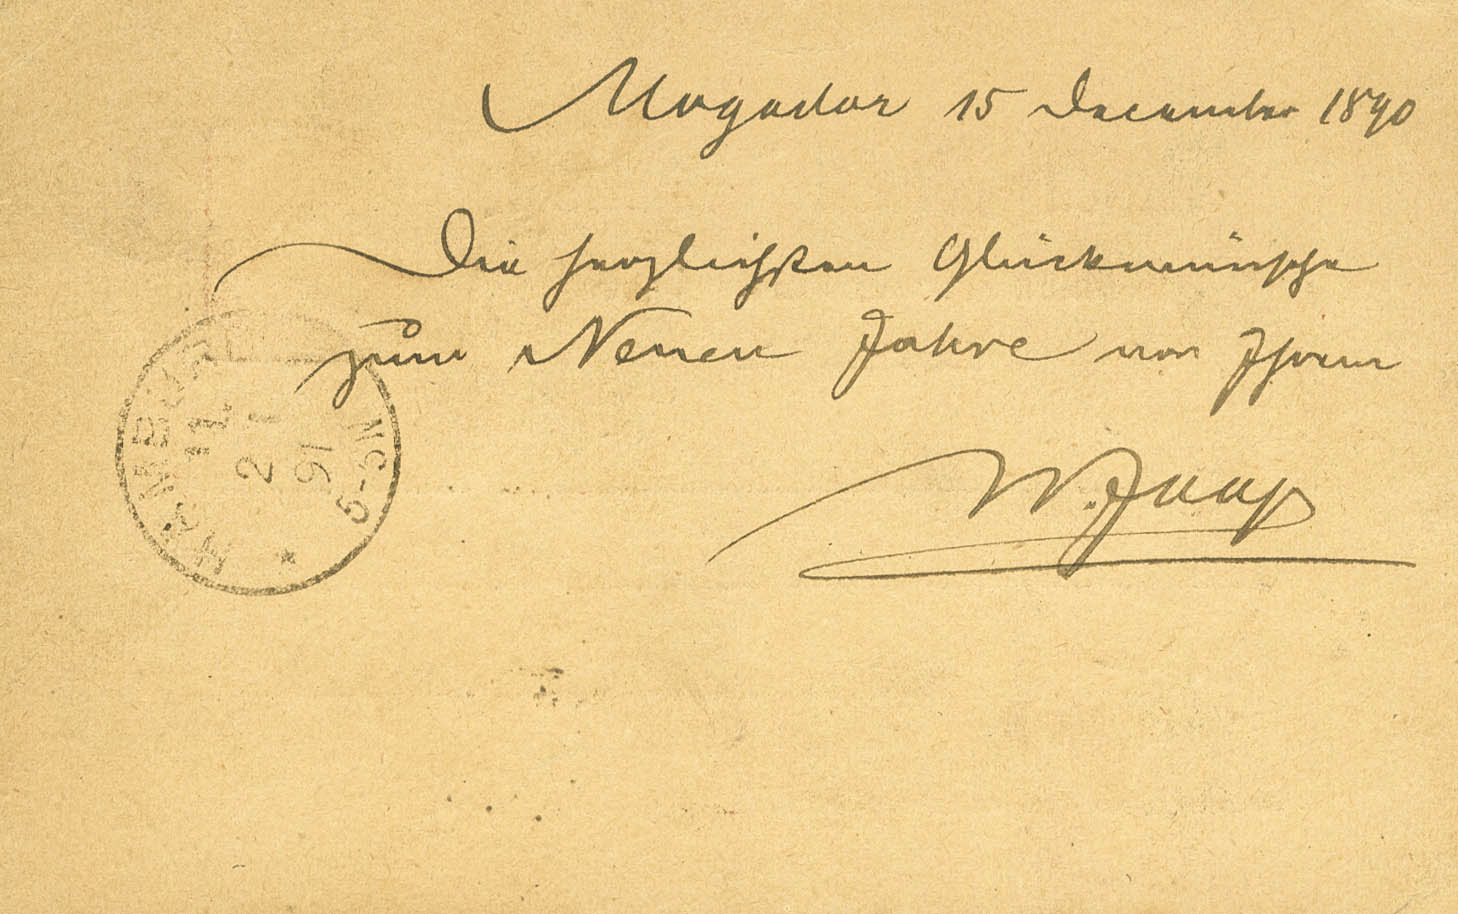 Mogador 15 December 1890
Die herzlichsten Glückwünsche
zum Neuen Jahre von Ihrem
W. Jaap
HAMBURG
11.
2 1
91
5-5N
*